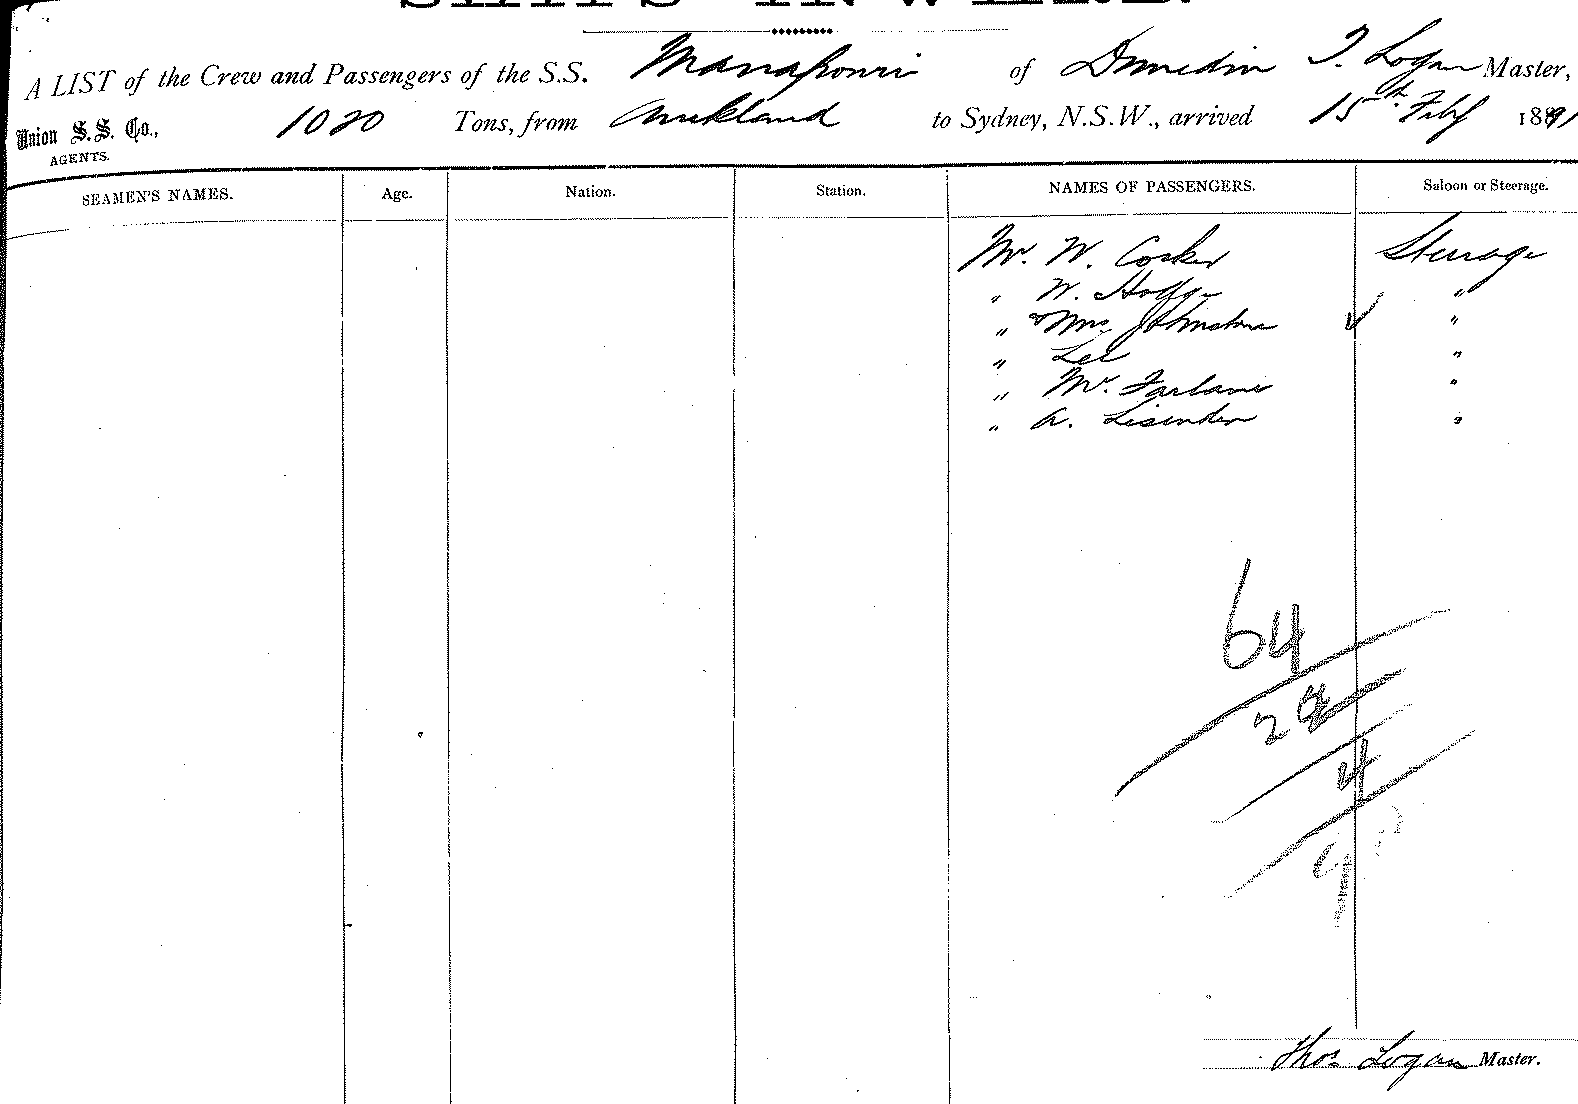 A LIST of the Crew and Passengers of the S.S. Manapouri of Dunedin T. Logan Master,
Union S.S. Co., AGENTS. 1020 Tons, from Auckland to Sydney, N.S.W., arrived 15th Feby 1891
SEAMEN'S NAMES. Age. Nation. Station. NAMES OF PASSENGERS. Saloon or Steerage.
Mr. W. Cocker Steerage
" W. "
" & Mrs Johnston "
" Lee "
" Mc. Farlane "
" A. "
64
4
Thos. Logan Master.